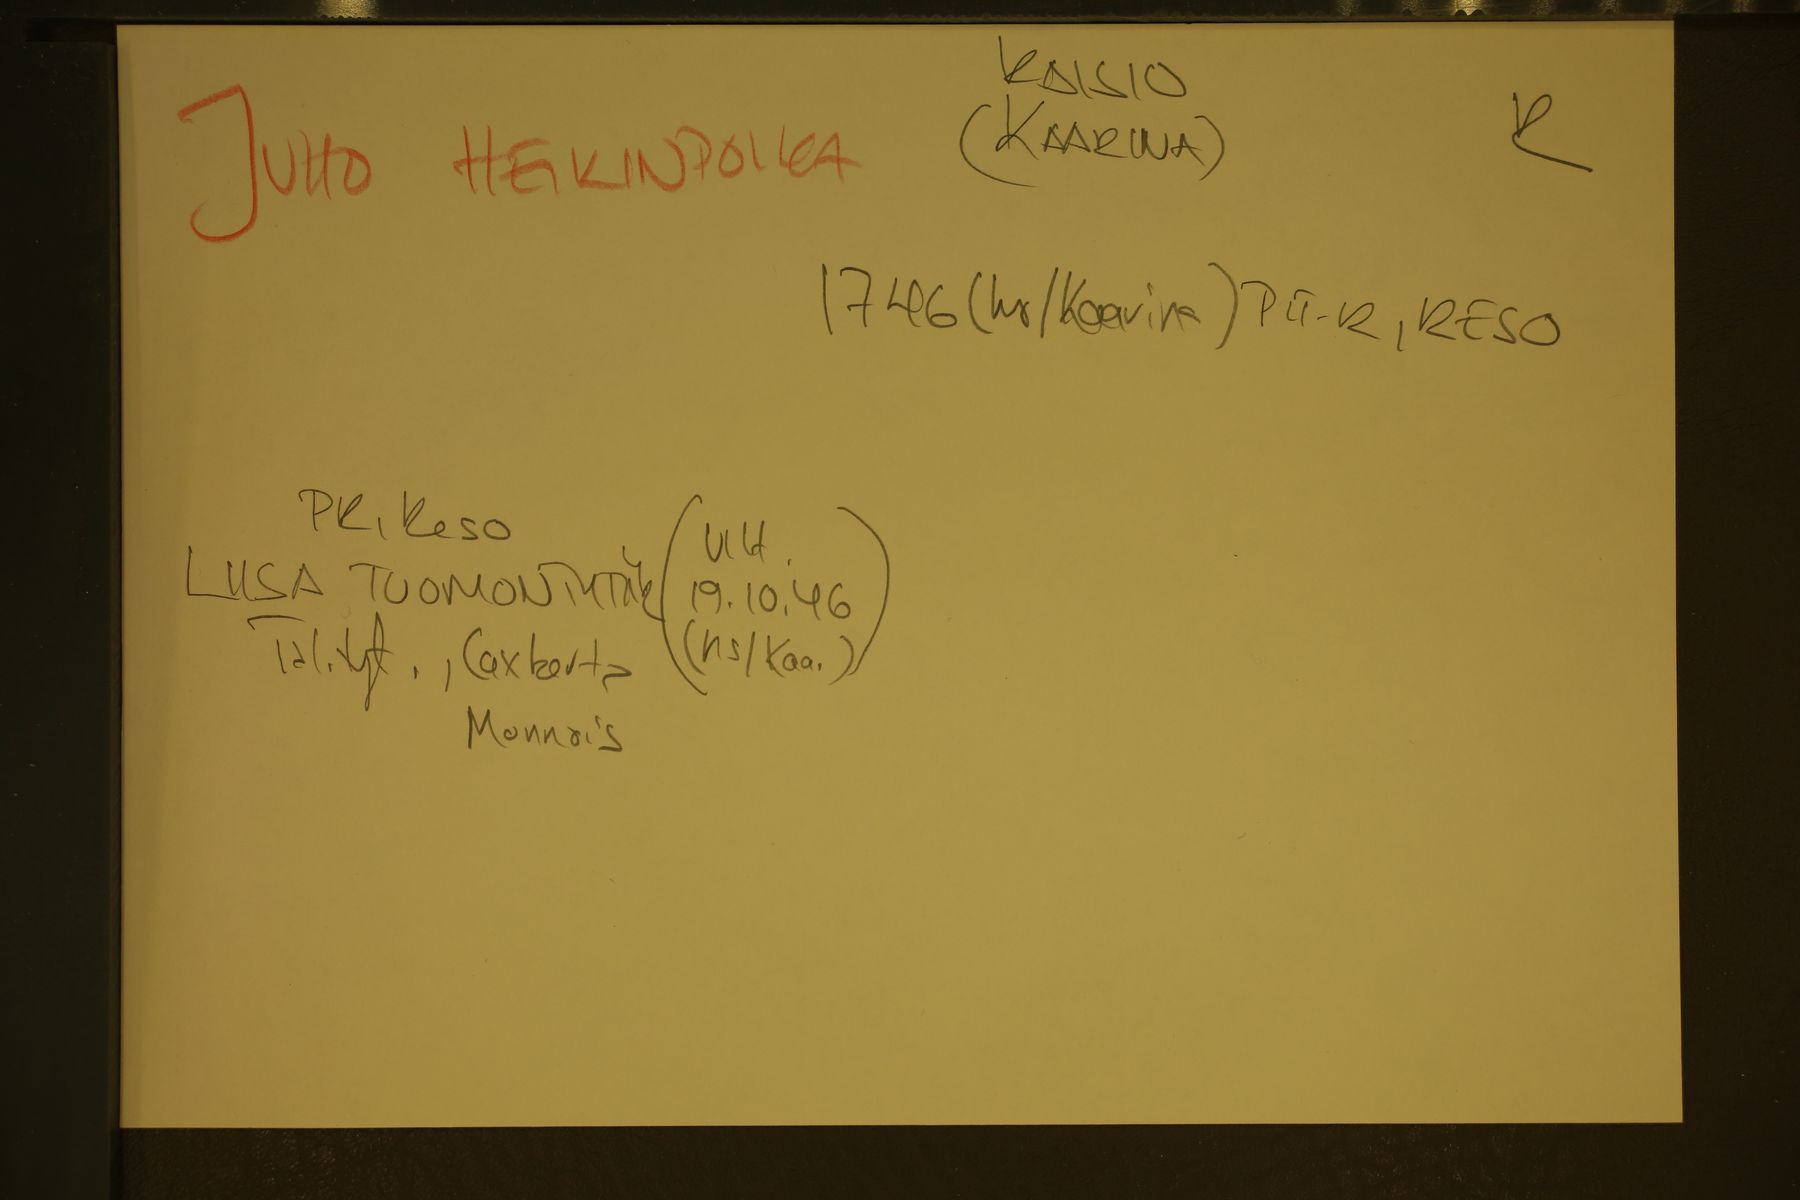 RAISIO
(KAARINA)
R
JUHO HEIKINPOIKA
1746 (hs/Kaarina) PIT-R, RESO
PR, Reso
LIISA TUOMONTYTÄR
Tal.tyt., Caxkerta
Monnois
(VIH.
19.10.46
(hs/Kaa.))